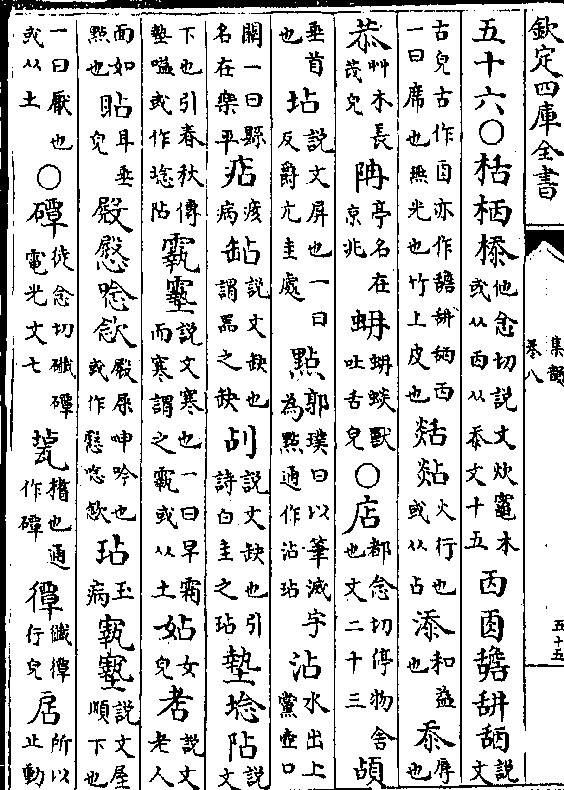 欽定四庫全書
集韻
卷八
五十五
五十六○栝㮇他念切說文炊竈木或从㐁从忝文十五㐁䑙舑說文
古皃古作亦作䑙舑㐁一曰席也無光也竹上皮也火行也或从占添和益也忝辱也
菾艸木長茂皃亭名在京兆蚺獸吐舌皃○店都念切停物舍也文二十三
垂首也坫說文屏也一曰反爵亢圭處點郭璞曰以筆滅字為點通作沾玷沾水出上黨壺口
關一曰縣名在樂平痁疲病說文缺也謂器之缺說文缺也引詩白圭之玷墊埝阽說文
下也引春秋傳墊隘或作埝阽說文寒也一曰早霜而寒謂之或从土女皃說文老人
面如點也耳垂皃唸殿屎呻吟也或作唸玷玉病說文屋傾下也
一曰厭也或从土○磹徒念切磹電光文七榰也通作磹行皃扂所以止動